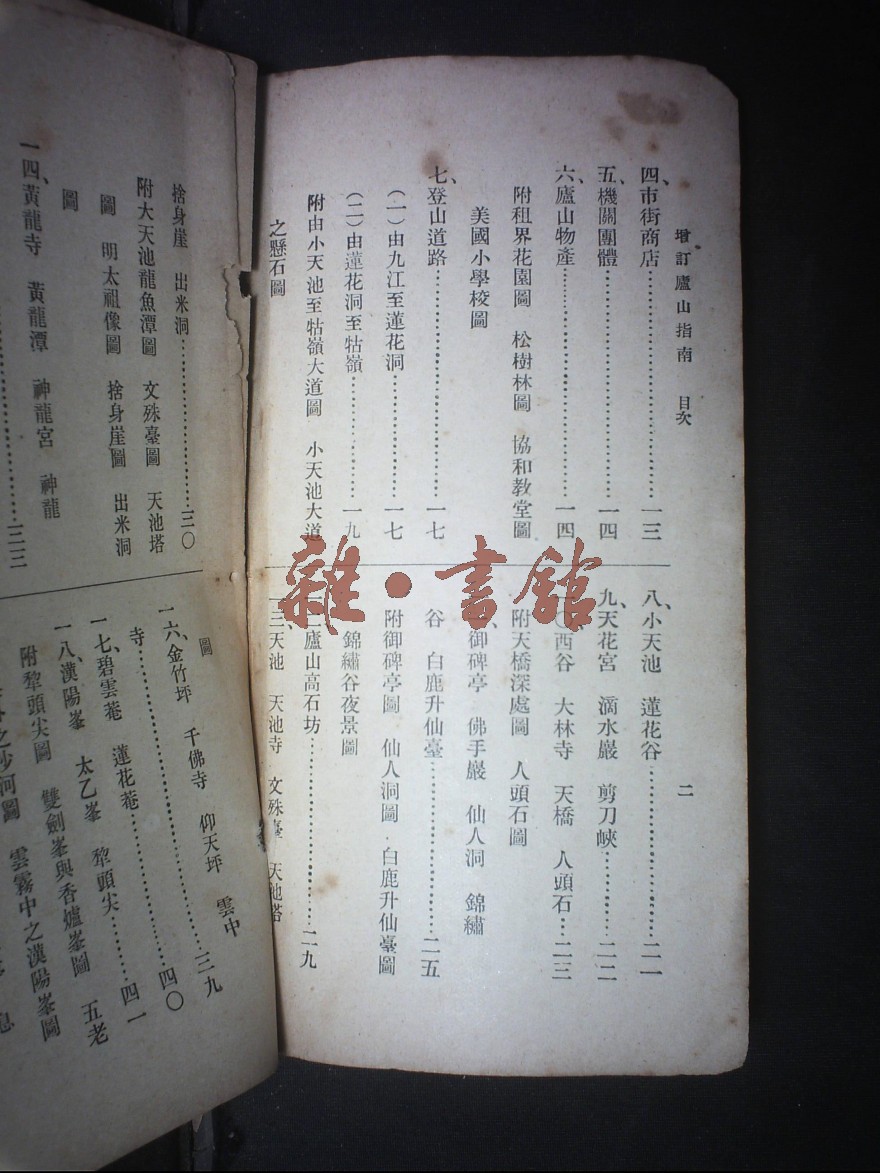 增訂廬山指南　目次
二
四、市街商店………一三
五、機關團體………一四
六、廬山物產………一四
附租界花園圖　松樹林圖　協和教堂圖
美國小學校圖
七、登山道路………一七
（一）由九江至蓮花洞………一七
（二）由蓮花洞至牯嶺………一九
附由小天池至牯嶺大道圖　小天池大道
之懸石圖
八、小天池　蓮花谷………二一
九、天花宮　滴水巖　剪刀峽………二二
西谷　大林寺　天橋　人頭石…二三
附天橋深處圖　人頭石圖
御碑亭　佛手巖　仙人洞　錦繡
谷　白鹿升仙臺………二五
附御碑亭圖　仙人洞圖　白鹿升仙臺圖
錦繡谷夜景圖
廬山高石坊………二九
一三、天池　天池寺　文殊臺　天池塔
捨身崖　出米洞………三〇
附大天池龍魚潭圖　文殊臺圖　天池塔
圖　明太祖像圖　捨身崖圖　出米洞
圖
一四、黃龍寺　黃龍潭　神龍宮　神龍
………三三
圖
一六、金竹坪　千佛寺　仰天坪　雲中
寺………三九
一七、碧雲菴　蓮花菴………四〇
一八、漢陽峯　太乙峯　犂頭尖………四一
附犂頭尖圖　雙劍峯與香爐峯圖　五老
之沙河圖　雲霧中之漢陽峯圖
雜·書館